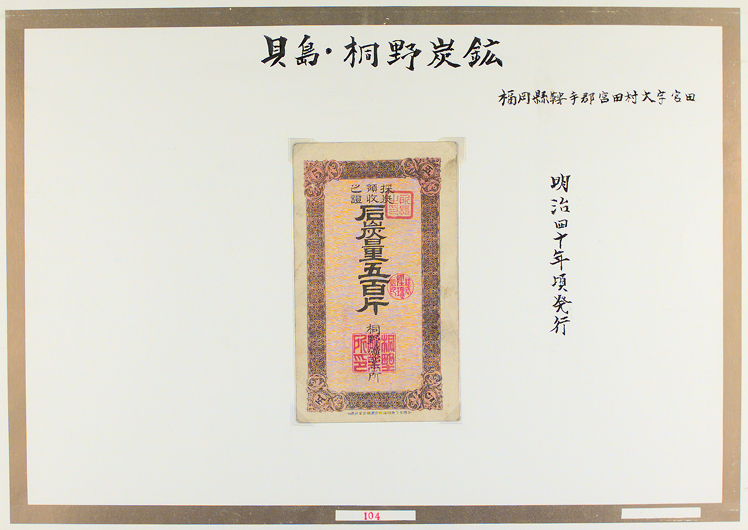 貝島・桐野炭鉱
福岡縣鞍手郡宮田村大字宮田
明治四十年頃発行
採炭
領收
之證
石炭量五百斤
桐野鑛業所
104